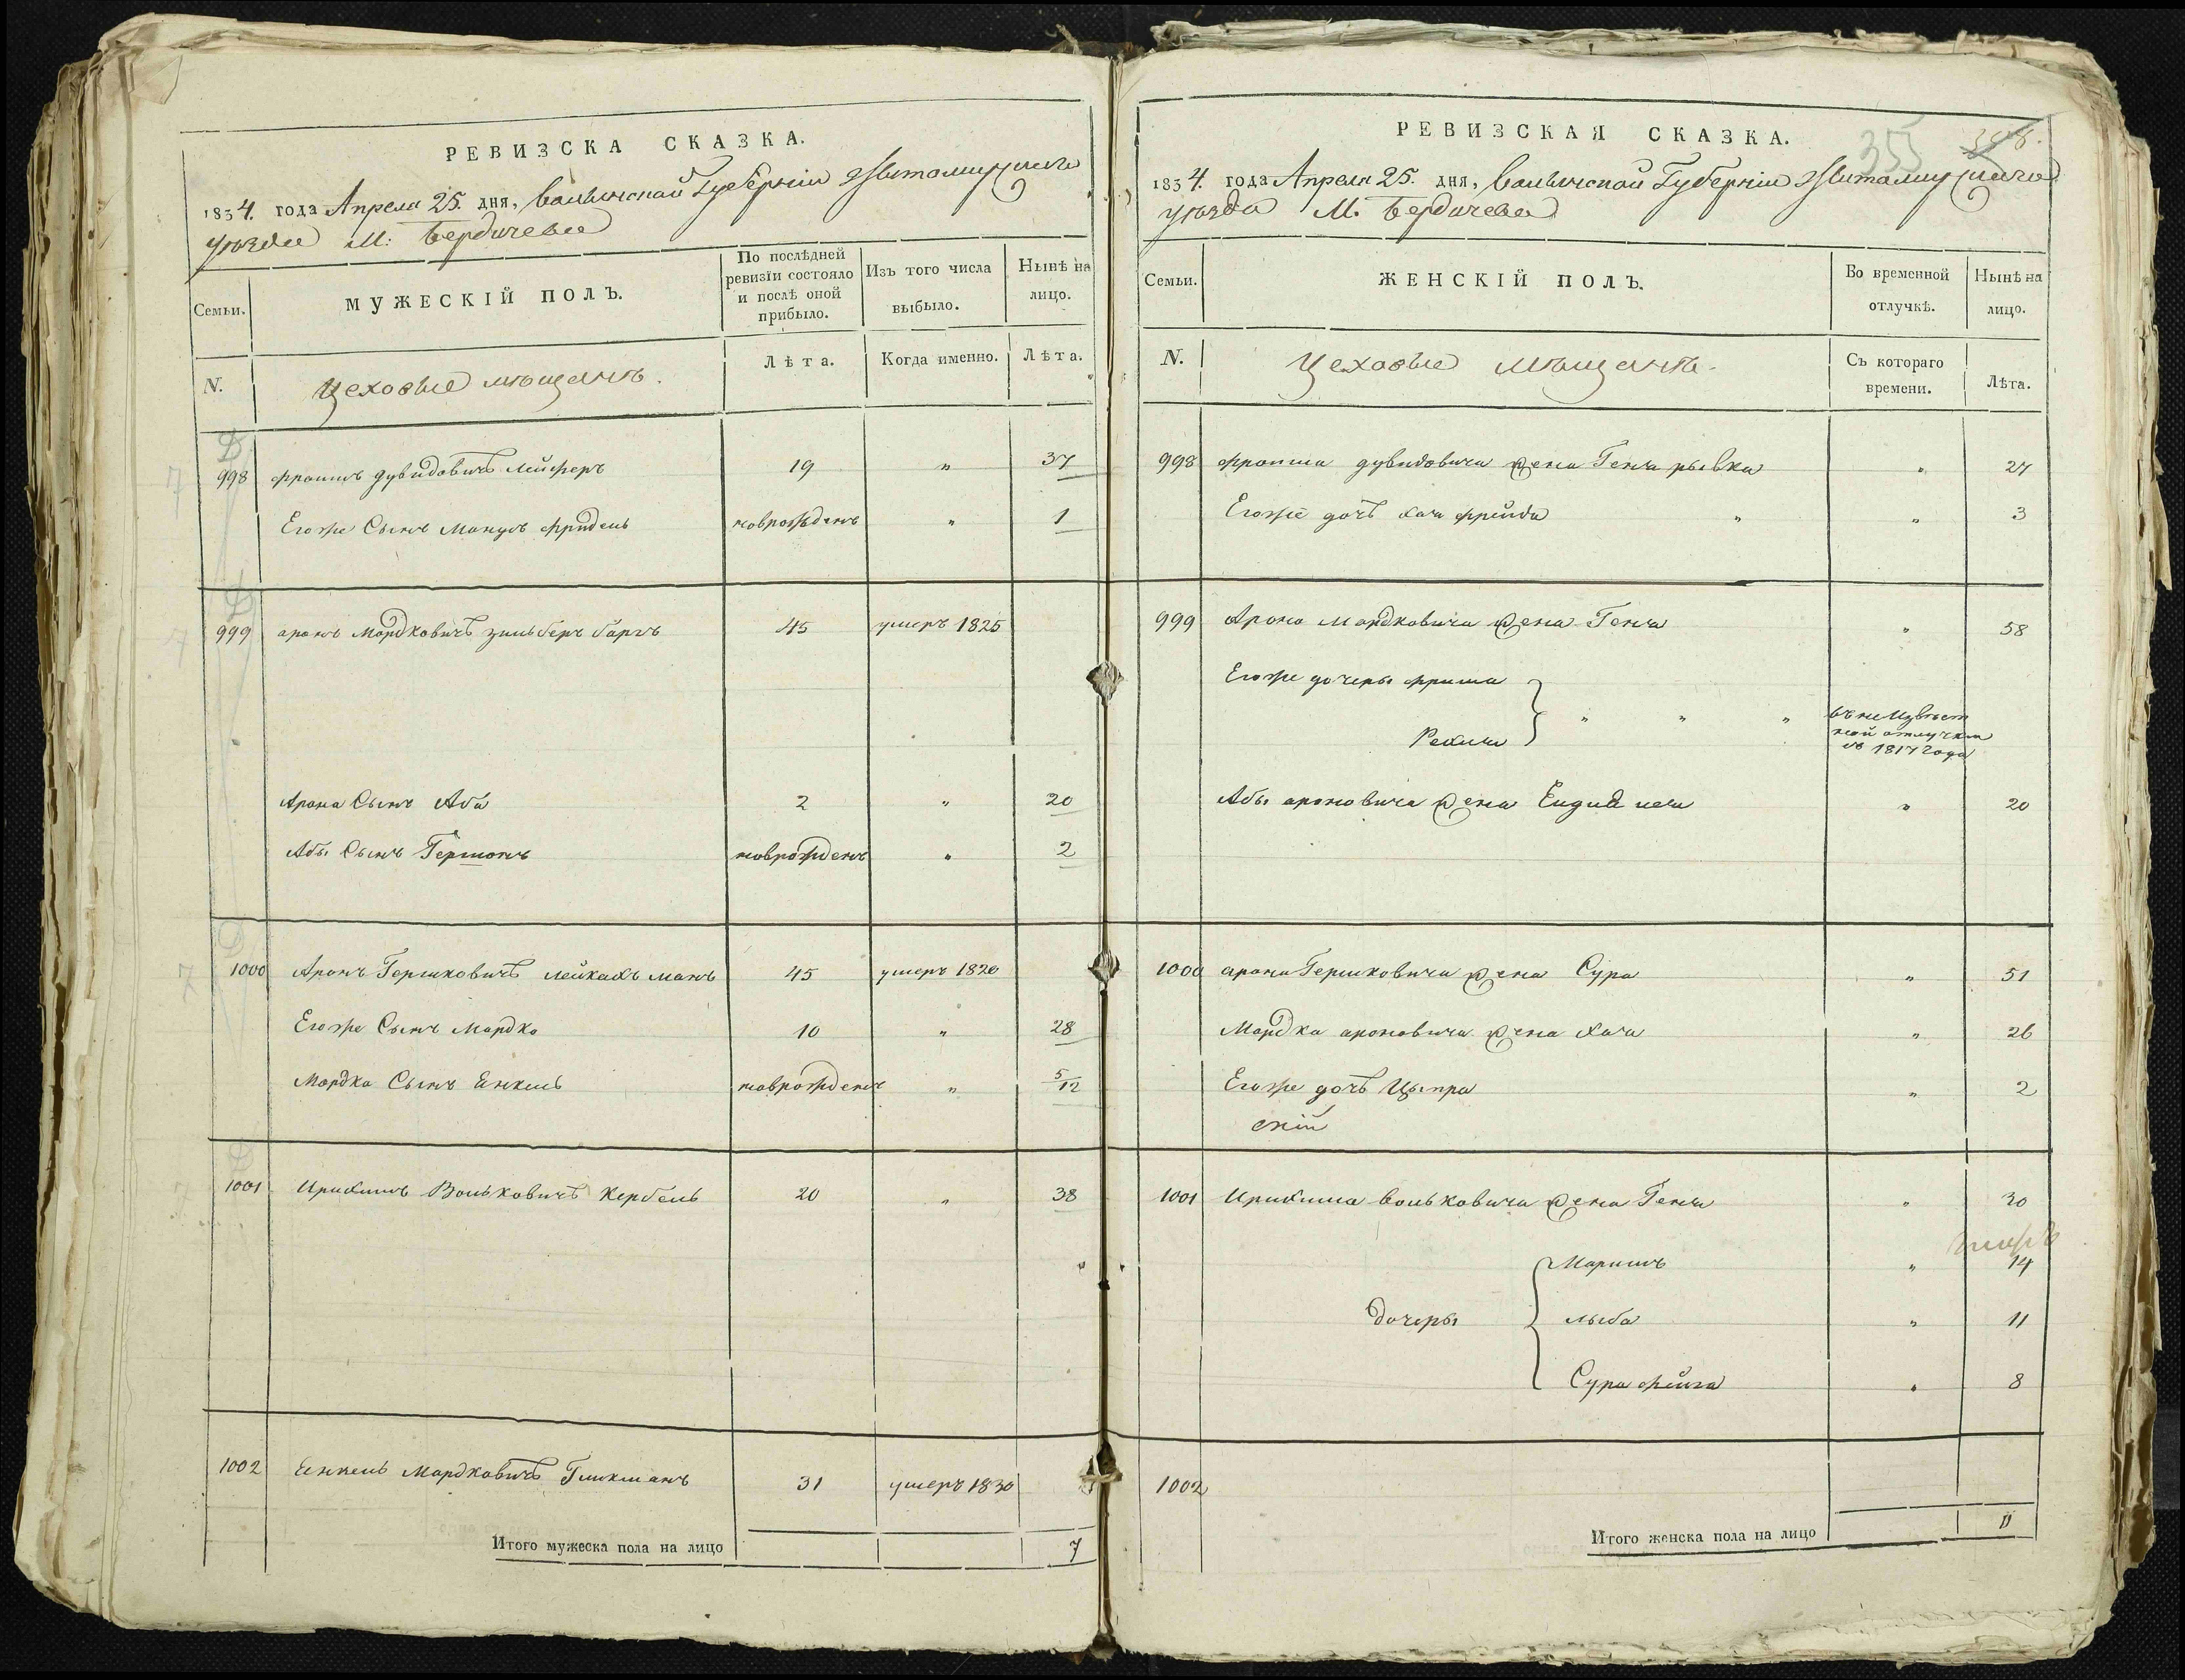 РЕВИЗСКА СКАЗКА.
1834. года Апреля 25. дня, Волынской Губернии Житомирского
уезда М: Бердичева
Семьи.
МУЖЕСКІЙ ПОЛЪ.
По послѣдней
ревизїи состояло
и послѣ оной
прибыло.
Изъ того числа
выбыло.
Нынѣ на
лицо.
N.
Цеховые мѣщанъ.
Лѣта.
Когда именно.
Лѣта.
998 Фроимъ дувидовичъ Лейферъ 19 " 37
Егоже Сынъ Манусъ Фридель новрожденъ " 1
999 аронъ Мордковичъ зильберъ баргъ 45 умеръ 1825
Арона Сынъ Аба 2 " 20
Абы Сынъ Гершонъ новрожденъ " 2
1000 Аронъ Гершковичъ лейкахъ манъ 45 умеръ 1820
Егоже Сынъ Мордко 10 " 28
Мордка Сынъ Енкель новрожденъ " 5/12
1001 Ирихимъ Вольковичъ Кербель 20 " 38
1002 Енкель Мордковичъ Гликманъ 31 умеръ 1830
Итого мужеска пола на лицо 7
РЕВИЗСКАЯ СКАЗКА.
355
1834. года Апреля 25. дня, Волынской Губернии Житомирского
уезда М. Бердичева
Семьи.
ЖЕНСКІЙ ПОЛЪ.
Во временной
отлучкѣ.
Нынѣ на
лицо.
N.
Цеховые мѣщанъ.
Съ котораго
времени.
Лѣта.
998 Фроима дувидовича жена Геня рывка " 27
Егоже дочь хая фрейда " " 3
999 Арона Мордковича жена Геня " 58
Егоже дочеры
" " " въ неизвѣст
ной отлучки
съ 1817 года
Абы ароновича жена 20
1000 арона Гершковича жена Сура " 51
Мордка ароновича жена хая " 26
Егоже дочь Ципра " 2
скій
1001 Ирихима вольковича жена Геня " 30
Маримъ " 14
дочеры лыба " 11
Сура фейга " 8
1002
Итого женска пола на лицо 11